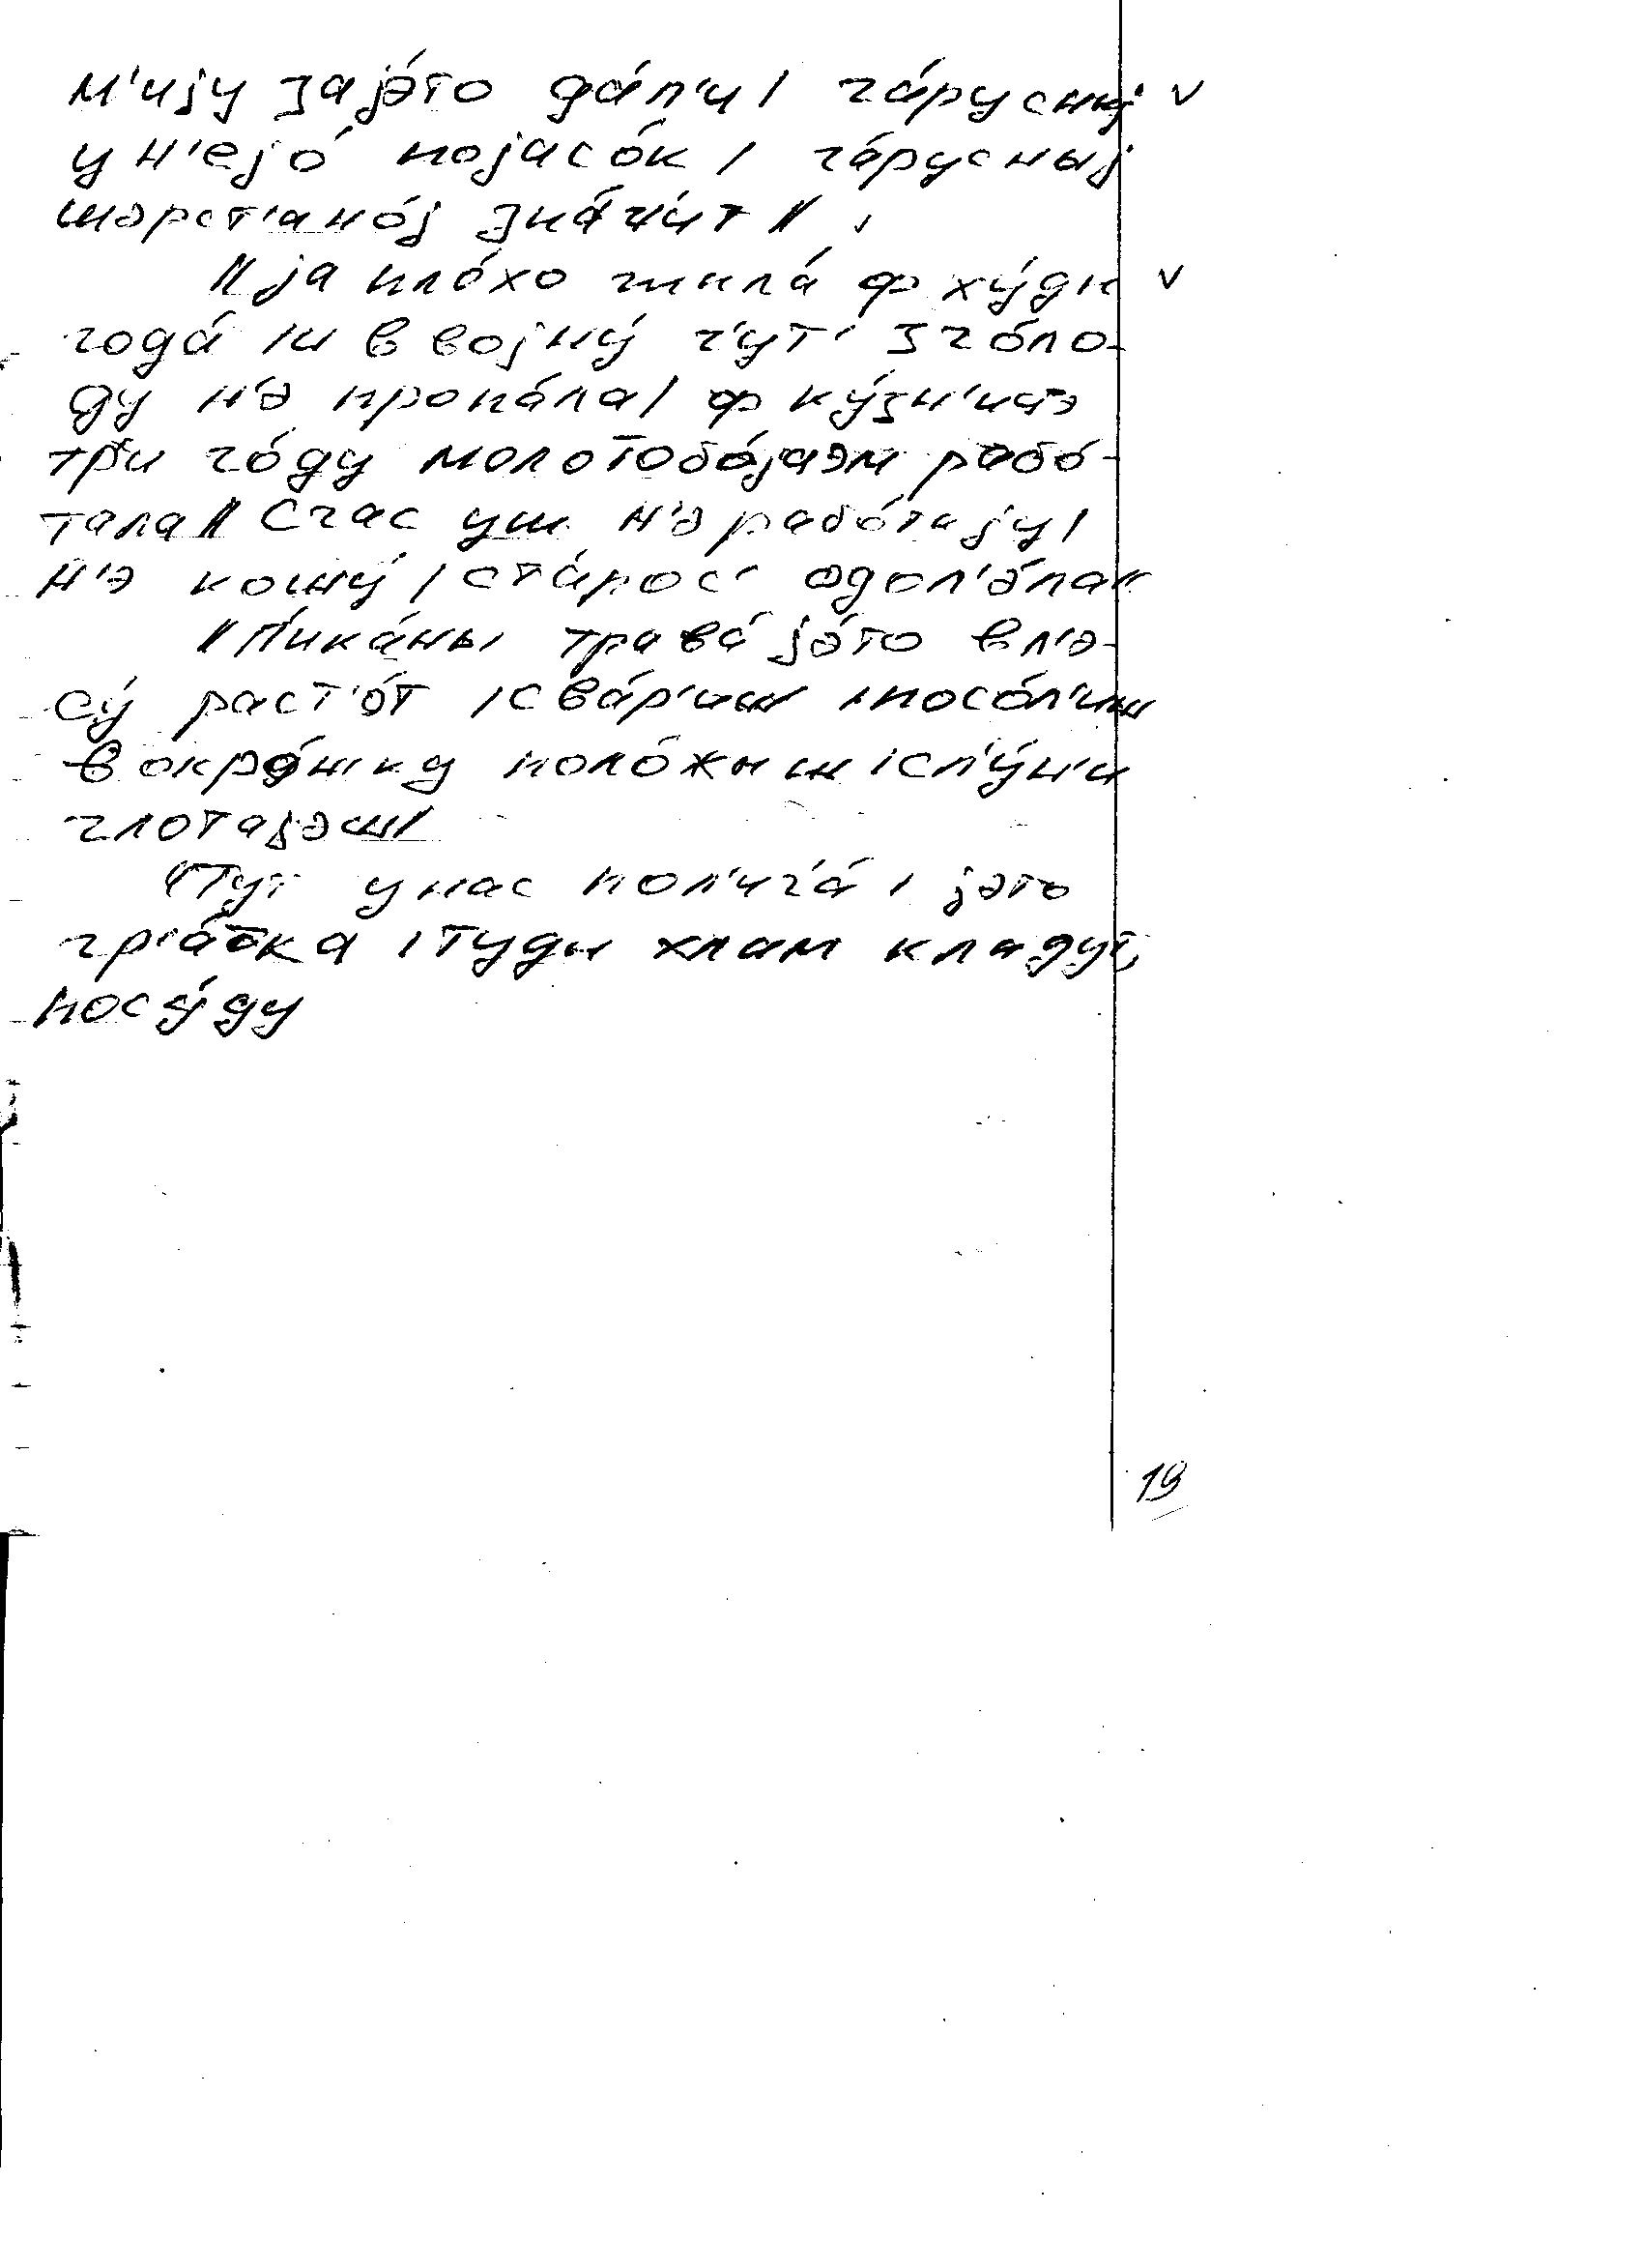 м'ијy зајэ́то да́л'и / га́русныј v
у н'ејо́ појасо́к / га́русныј
шэрст'ано́ј зна́ч'ит // v
// ја пло́хо жыла́ ф ху́ды v
года́ / и в војну́ ч'ут' з го́ло-
ду н'э пропа́ла / ф ку́зн'ицэ
три го́ду молотобо́јцэм рабо́-
тала // Счас уш н'э рабо́тају /
н'э кошу́ / ста́рос' одол'э́ла //
// П'ика́ны трава́ јэ́то в л'э-
су́ раст'о́т / сва́р'иш / посо́л'иш
в окро́шку поло́жыш / сл'у́н'и
глотајэш /
// Тут у нас пол'ич'а́ / јэто
гр'а́тка / туды хлам кладут,
посу́ду
19